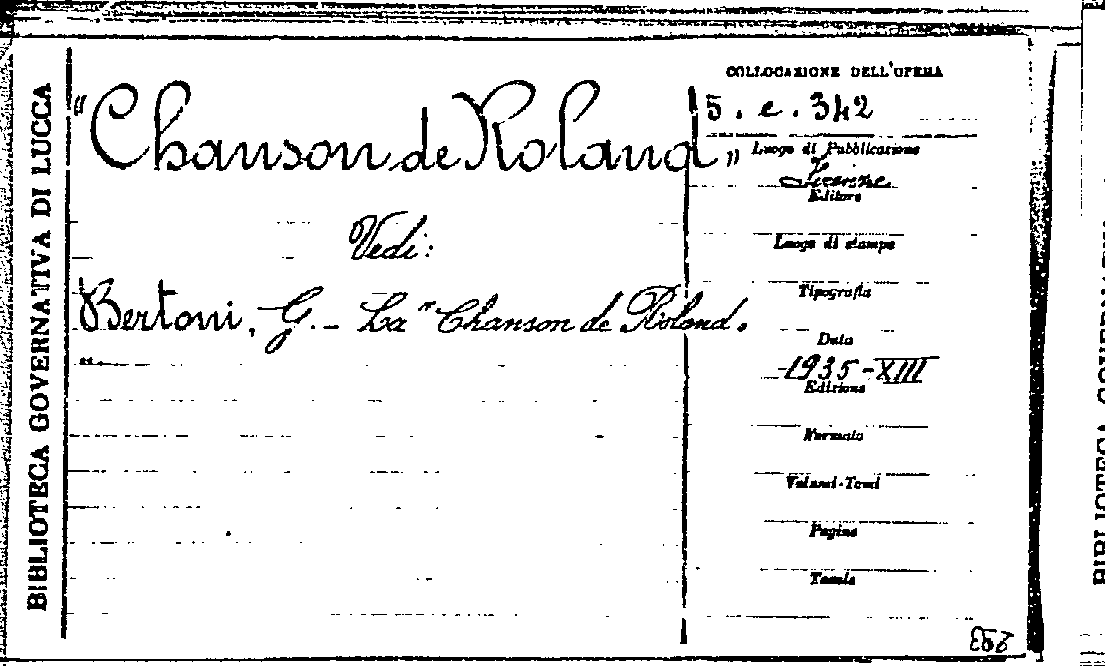 BIBLIOTECA GOVERNATIVA DI LUCCA
"Chanson de Roland"
Vedi:
Bertoni, G. - La "Chanson de Roland.
"
COLLOCAZIONE DELL'OPERA
5. e. 342
Luogo di Pubblicazione
Firenze
Editore
Luogo di stampa
Tipografia
Data
1935-XIII
Edizione
Formato
Volumi-Tomi
Pagine
Tavole